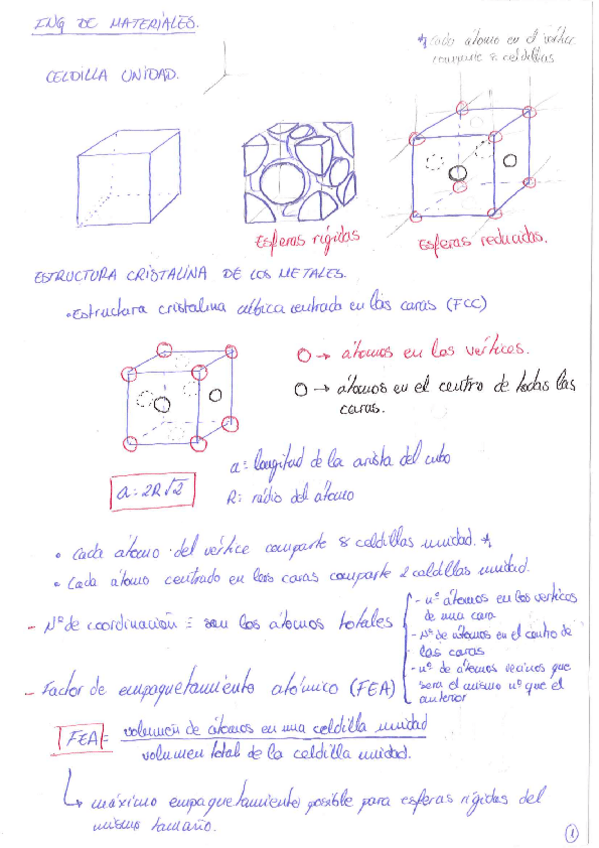 ING DE MATERIALES.
* Cada átomo en el vértice
comparte 8 celdillas
CELDILLA UNIDAD.
Esferas rígidas
Esferas reducidas.
ESTRUCTURA CRISTALINA DE LOS METALES.
• Estructura cristalina cúbica centrada en las caras (FCC)
O → átomos en los vértices.
O → átomos en el centro de todas las
caras.
a = longitud de la arista del cubo
a = 2R√2
R: rádio del átomo
• Cada átomo del vértice comparte 8 celdillas unidad. *
• Cada átomo centrado en las caras comparte 2 celdillas unidad.
- nº átomos en los vertices
de una cara
- Nº de coordinación = son los átomos totales
- Nº de átomos en el centro de
las caras
- nº de átomos vecinos que
será el mismo nº que el
anterior
- Factor de empaquetamiento atómico (FEA)
FEA = volumen de átomos en una celdilla unidad
volumen total de la celdilla unidad.
↳ máximo empaquetamiento posible para esferas rígidas del
mismo tamaño.
1